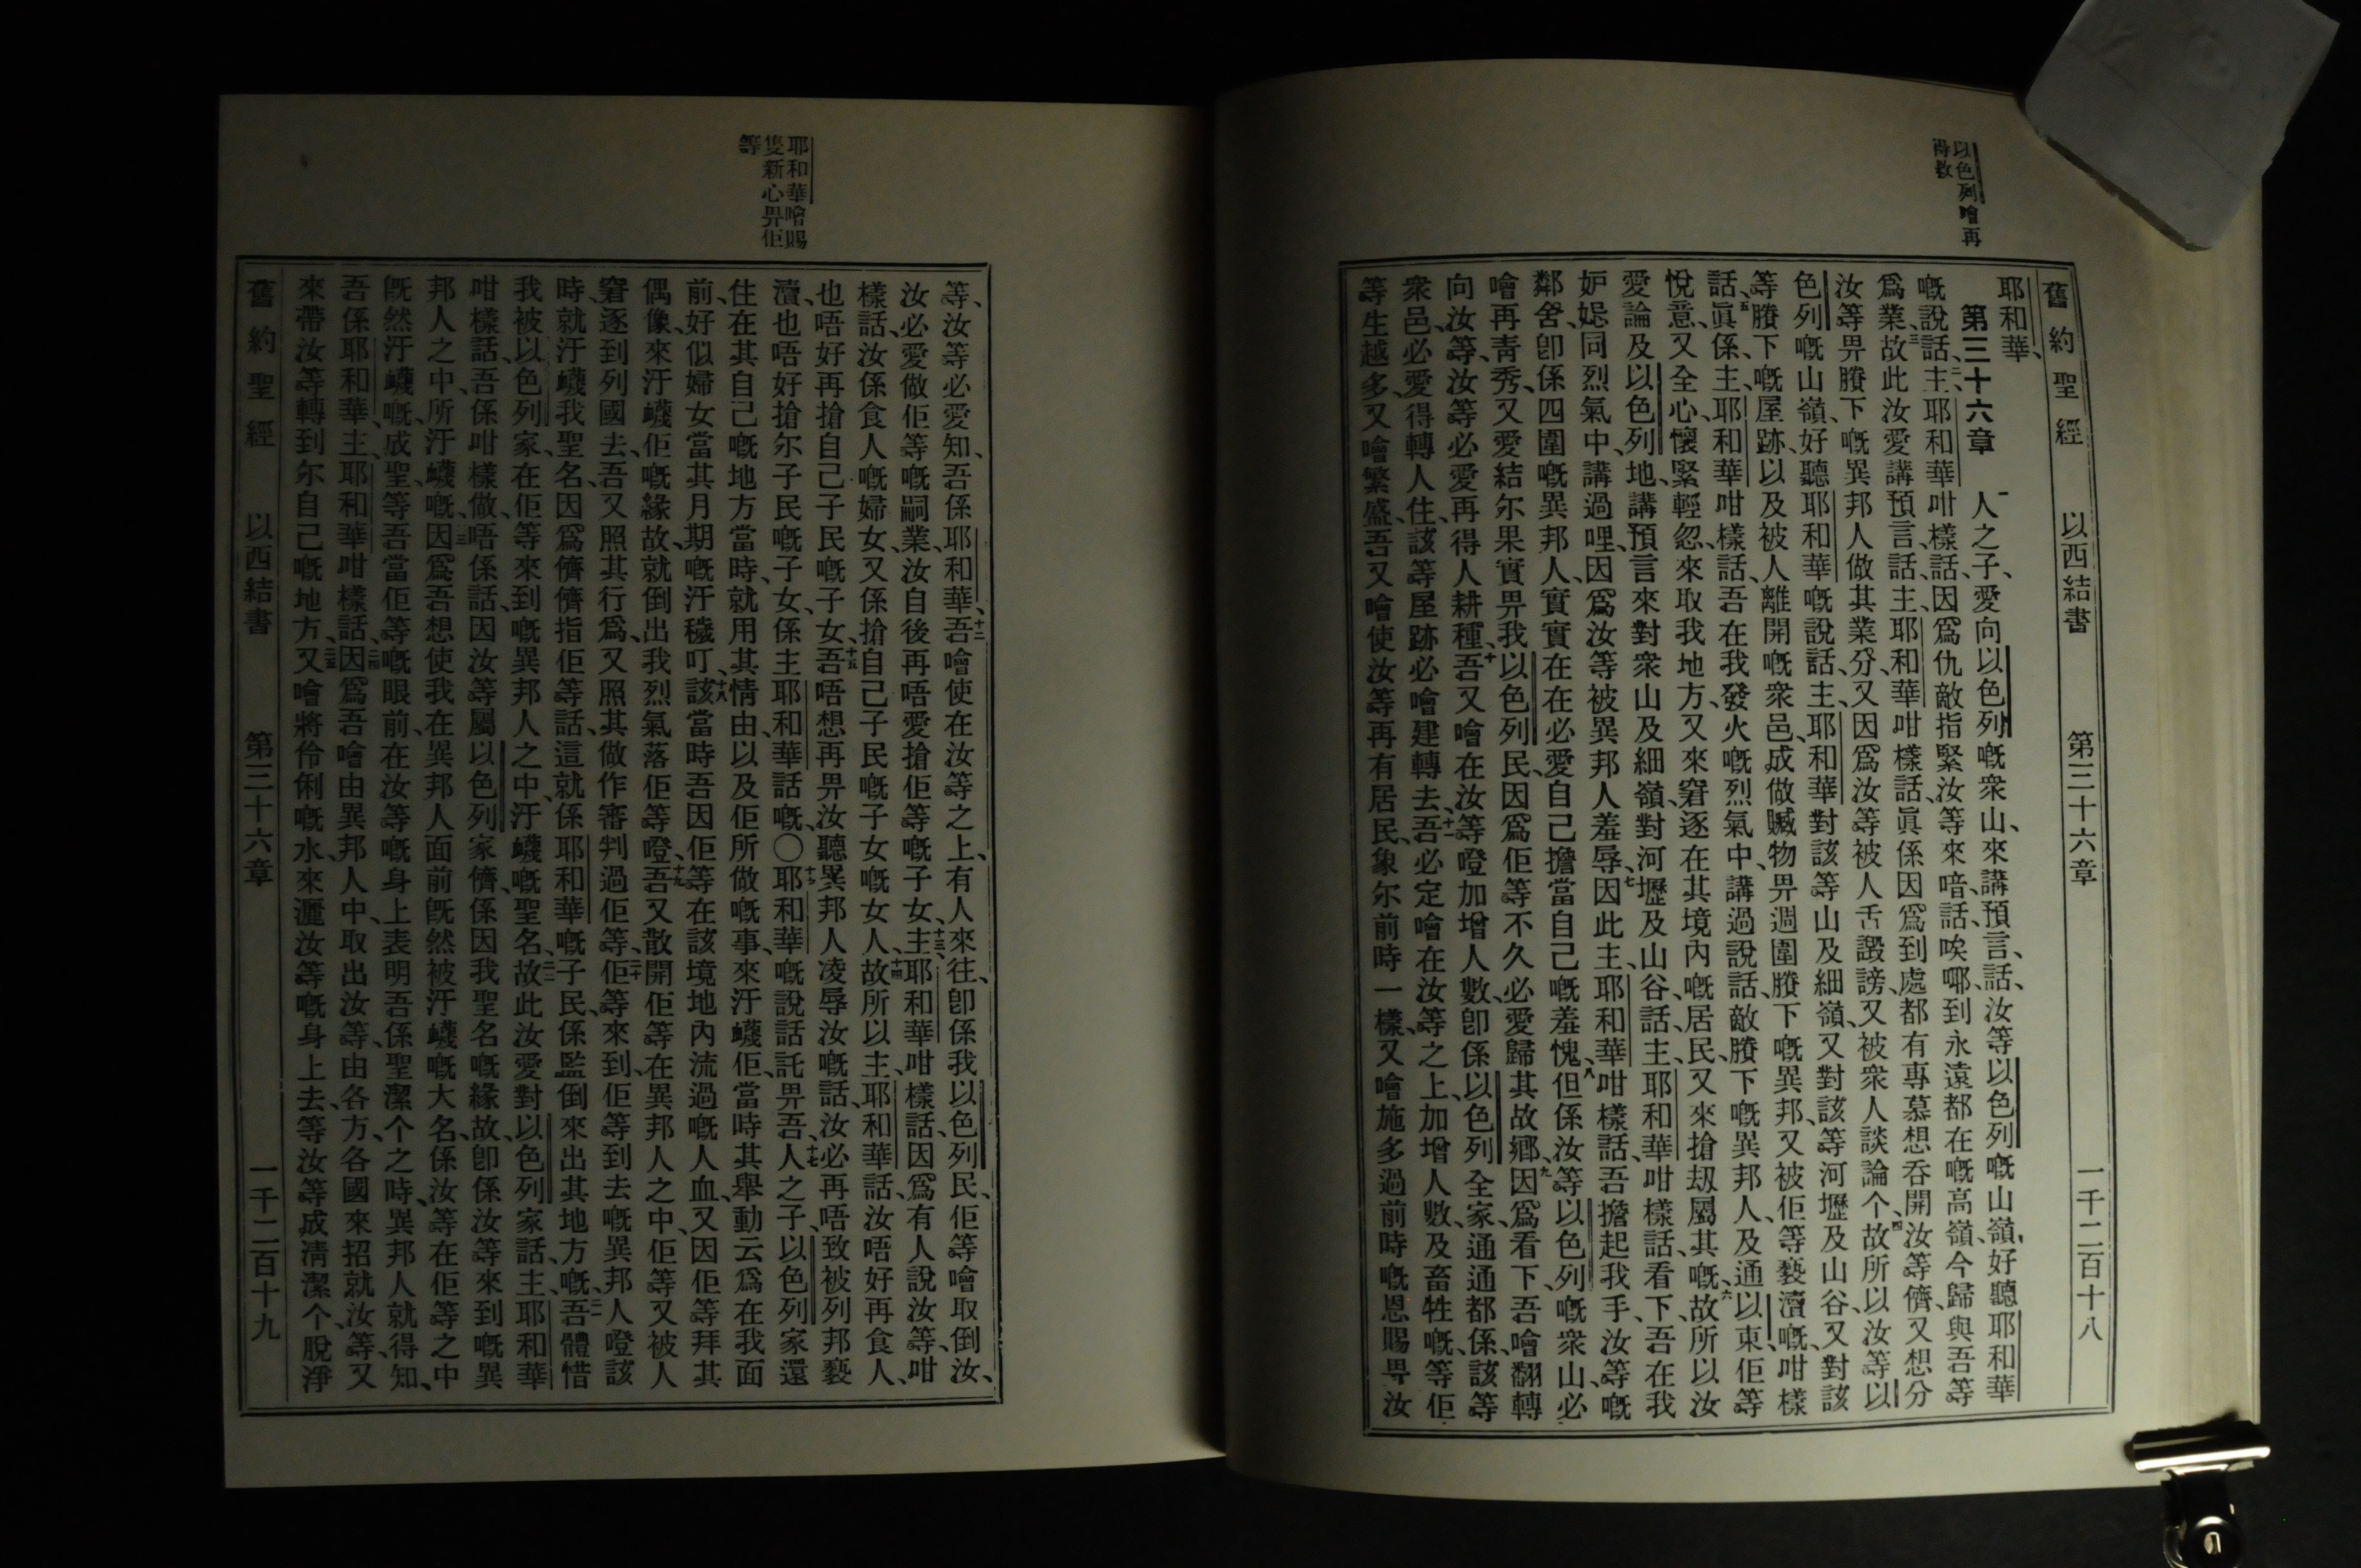 舊約聖經　以西結書　第三十六章　一千二百十八
以色列噲再
得救
耶和華、
第三十六章　一人之子、愛向以色列嘅衆山、來講預言、話、汝等以色列嘅山嶺、好聽耶和華
嘅說話、二主、耶和華咁樣話、因爲仇敵指緊汝等來喑話、唉㖿到永遠都在嘅高嶺、今歸與吾等
爲業、三故此汝愛講預言話、主、耶和華咁樣話、眞係因爲到處都有專慕想吞開汝等儕、又想分
汝等畀賸下嘅異邦人做其業分、又因爲汝等被人舌譭謗、又被衆人談論个、四故所以汝等以
色列嘅山嶺、好聽耶和華嘅說話、主、耶和華對該等山及細嶺、又對該等河壢及山谷、又對該
等賸下嘅屋跡、以及被人離開嘅衆邑、成做贓物畀週圍賸下嘅異邦、又被佢等褻瀆嘅、咁樣
話、五眞係、主、耶和華咁樣話、吾在我發火嘅烈氣中、講過說話、敵賸下嘅異邦人、及通以東、佢等
悅意、又全心懷緊輕忽、來取我地方、又來窘逐在其境內嘅居民、又來搶刼屬其嘅、六故所以汝
愛論及以色列地、講預言來對衆山及細嶺、對河壢及山谷話、主、耶和華咁樣話、看下、吾在我
妒㛅同烈氣中、講過哩、因爲汝等被異邦人羞辱、七因此主、耶和華咁樣話、吾擔起我手、汝等嘅
鄰舍、卽係四圍嘅異邦人、實實在在必愛自己擔當自己嘅羞愧、八但係汝等以色列嘅衆山、必
噲再靑秀、又愛結尓果實畀我以色列民、因爲佢等不久必愛歸其故鄉、九因爲看下、吾噲翻轉
向汝等、汝等必愛再得人耕種、十吾又噲在汝等噔加增人數、卽係以色列全家、通通都係、該等
衆邑、必愛得轉人住、該等屋跡必噲建轉去、十一吾必定噲在汝等之上、加增人數、及畜牲嘅、等佢
等生越多、又噲繁盛、吾又噲使汝等再有居民、象尓前時一樣、又噲施多過前時嘅恩賜畀汝
耶和華噲賜
隻新心畀佢
等
等、汝等必愛知、吾係耶和華、十二吾噲使在汝等之上、有人來往、卽係我以色列民、佢等噲取倒汝、
汝必愛做佢等嘅嗣業、汝自後再唔愛搶佢等嘅子女、十三主、耶和華咁樣話、因爲有人說汝等、咁
樣話、汝係食人嘅婦女、又係搶自己子民嘅子女嘅女人、十四故所以主、耶和華話、汝唔好再食人、
也唔好再搶自己子民嘅子女、十五吾唔想再畀汝聽異邦人凌辱汝嘅話、汝必再唔致被列邦褻
瀆、也唔好搶尓子民嘅子女、係主耶和華話嘅、〇十六耶和華嘅說話託畀吾、十七人之子、以色列家還
住在其自己嘅地方當時、就用其情由、以及佢所做嘅事、來汙衊佢、當時其舉動云爲在我面
前、好似婦女當其月期嘅汙穢叮、十八該當時吾因佢等在該境地內流過嘅人血、又因佢等拜其
偶像、來汙衊佢嘅緣故、就倒出我烈氣落佢等噔、十九吾又散開佢等在異邦人之中、佢等又被人
窘逐到列國去、吾又照其行爲、又照其做作審判過佢等、二十佢等來到、佢等到去嘅異邦人噔該
時、就汙衊我聖名、因爲儕儕指佢等話、這就係耶和華嘅子民、係監倒來出其地方嘅、二一吾體惜
我被以色列家、在佢等來到嘅異邦人之中、汙衊嘅聖名、二二故此汝愛對以色列家話、主、耶和華
咁樣話、吾係咁樣做、唔係話、因汝等屬以色列家儕、係因我聖名嘅緣故、卽係汝等來到嘅異
邦人之中、所汙衊嘅、二三因爲吾想使我在異邦人面前旣然被汙衊嘅大名、係汝等在佢等之中
旣然汙衊嘅、成聖、等吾當佢等嘅眼前、在汝等嘅身上表明吾係聖潔个之時、異邦人就得知、
吾係耶和華、主、耶和華咁樣話、二四因爲吾噲由異邦人中、取出汝等、由各方、各國來招就汝等、又
來帶汝等轉到尓自己嘅地方、二五又噲將伶俐嘅水、來灑汝等嘅身上去、等汝等成淸潔个、脫淨
舊約聖經　以西結書　第三十六章　一千二百十九